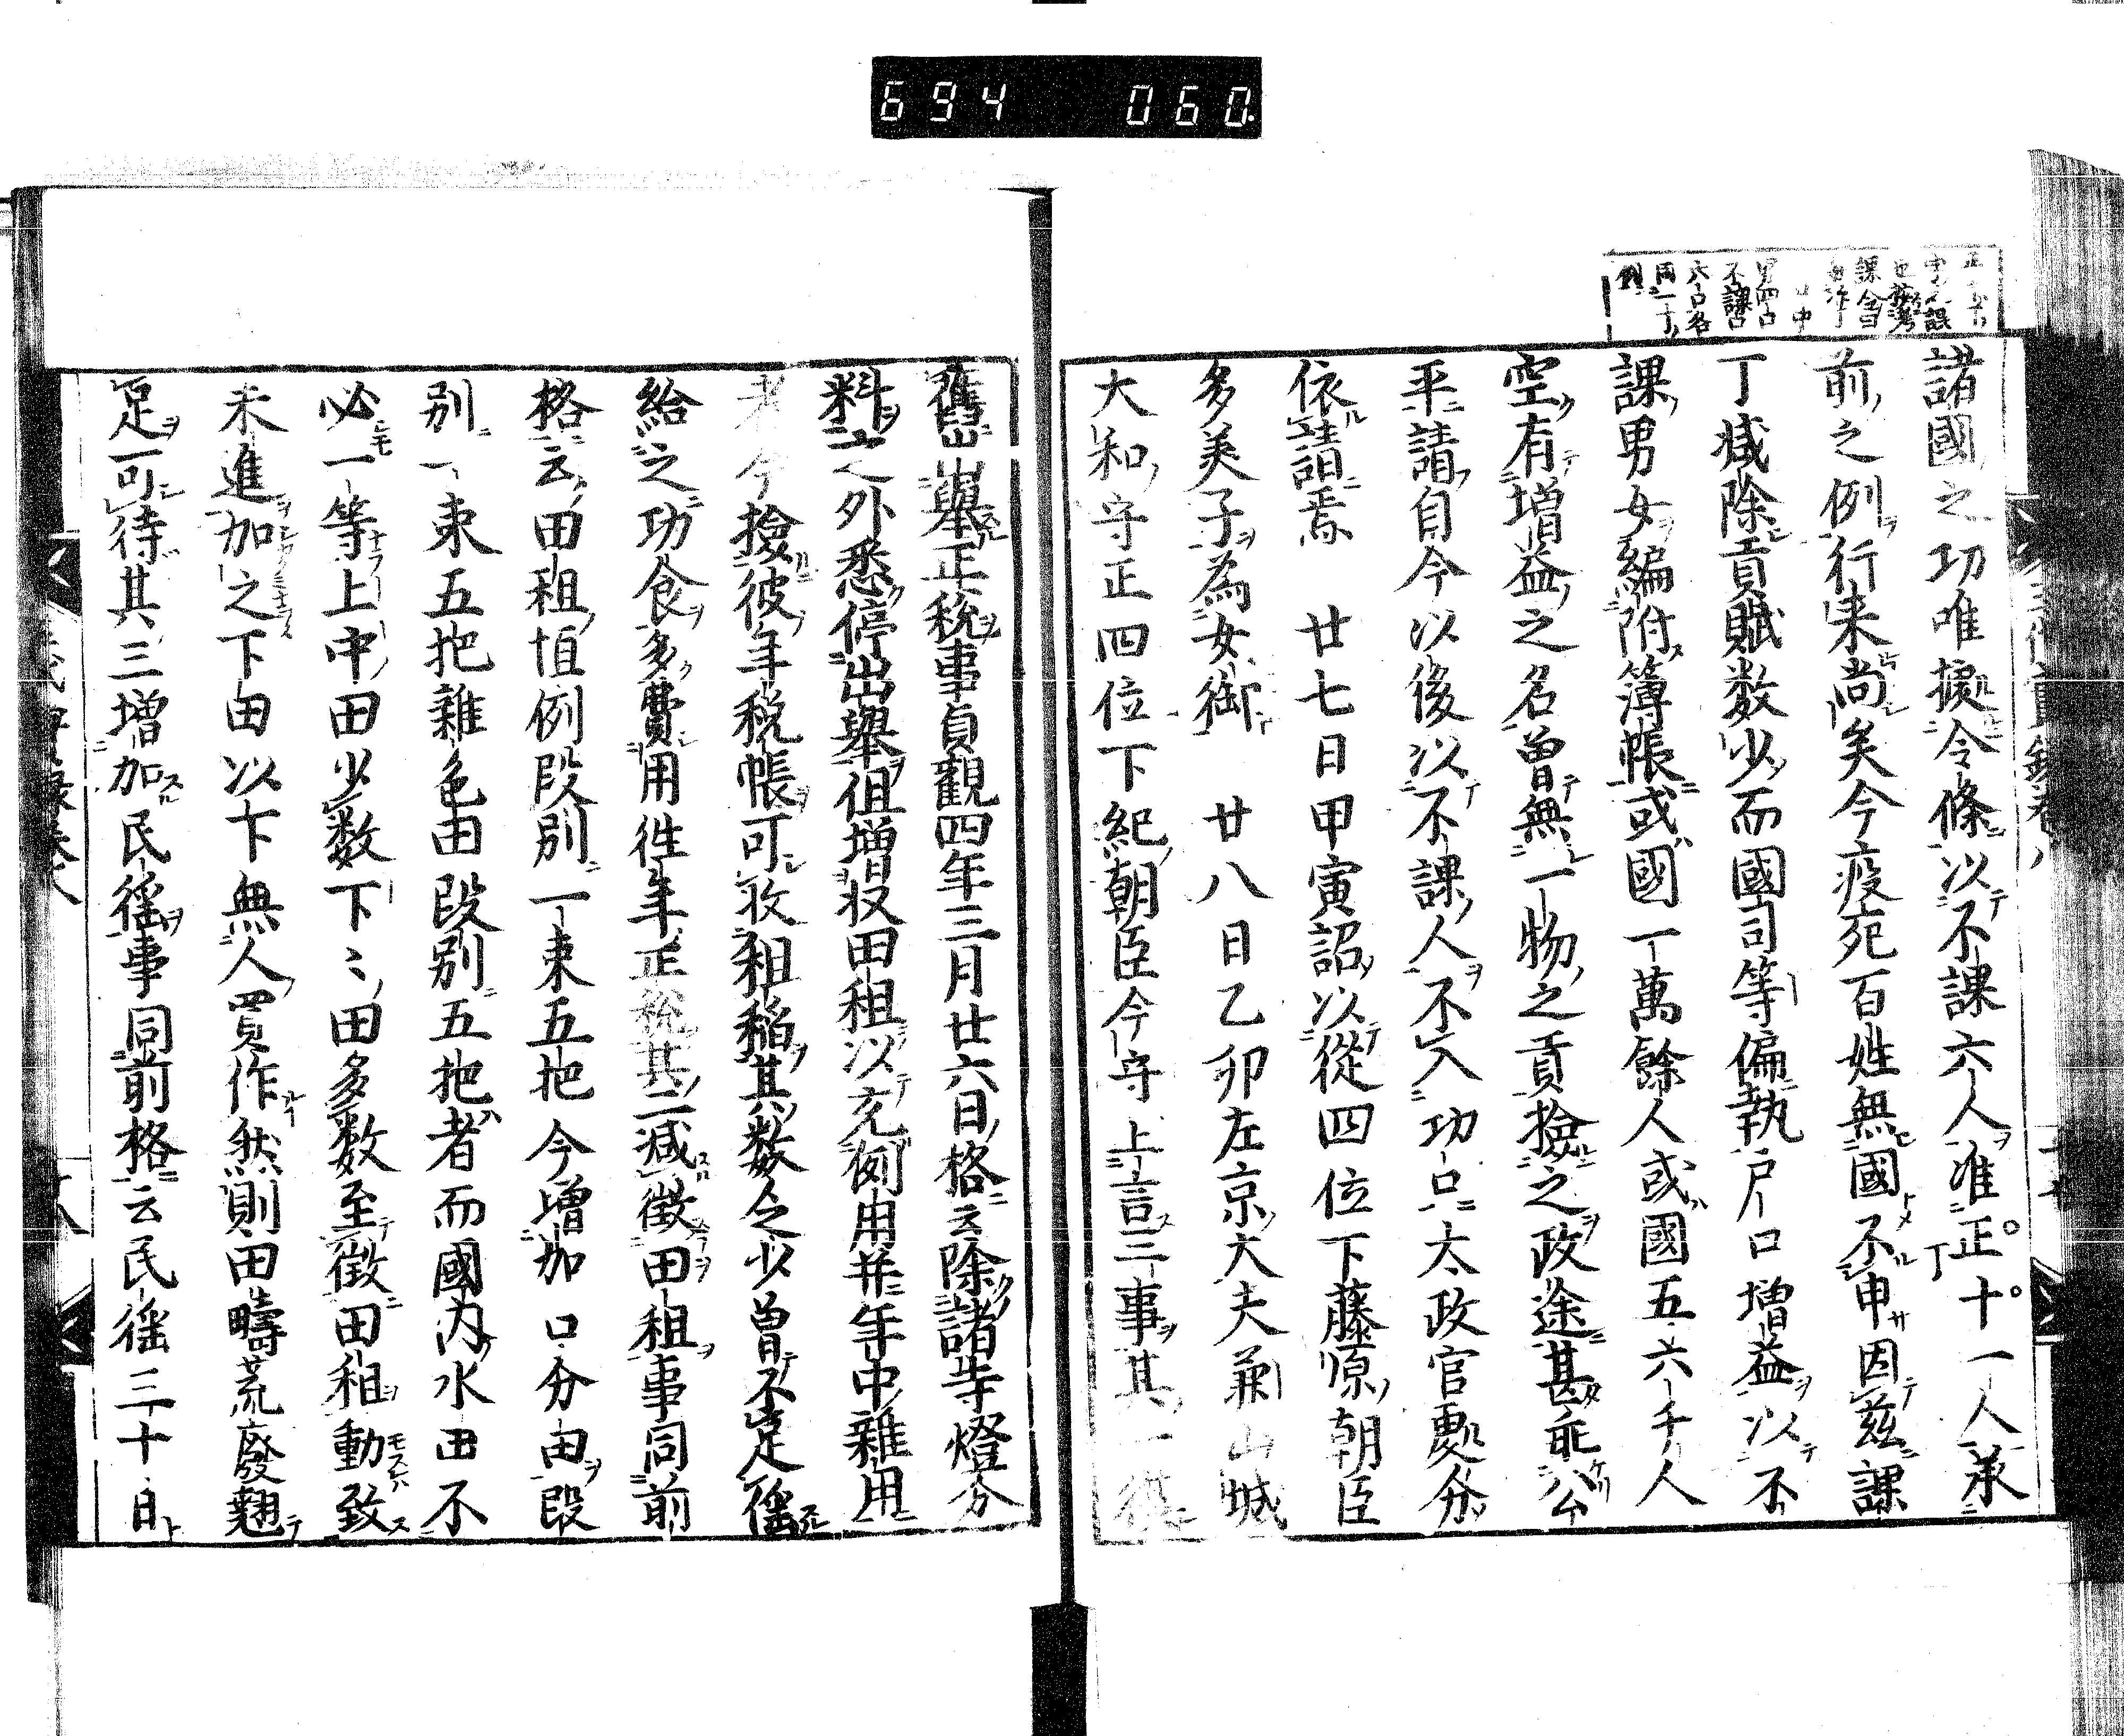 694 060
諸國之功唯據令條以不課六人准正丁十一人承
前之例行来尚矣今疫死百姓無國不申因茲課
丁減除貢賦数少而國司等偏執戸口増益以不
課男女編附簿帳或國一萬餘人或國五六千人
空有増益之名曽無一物之貢撿之政途甚乖公
平請自今以後以不課人不入功口太政官處分
依請焉 廿七日甲寅詔以從四位下藤原朝臣
多美子為女御 廿八日乙卯左京大夫兼山城
大和守正四位下紀朝臣今守上言三事其一
舊出舉正税事貞觀四年三月廿六日格云除諸寺燈分
料之外悉停出舉但増収田租以充例用并年中雜用
者今撿彼年税帳可收租稲其数乏少曽不足徭
給之功食多費用徃年正税其二減徴田租事同前
格云田租恒例段別一束五把今増加口分田段
別一束五把雜色田段別五把者而國内水田不
必一等上中田少数下〻田多数至徴田租動致
未進加之下田以下無人買作然則田疇荒廢翹
足可待其三増加民徭事同前格云民徭三十日
不課口
六口各